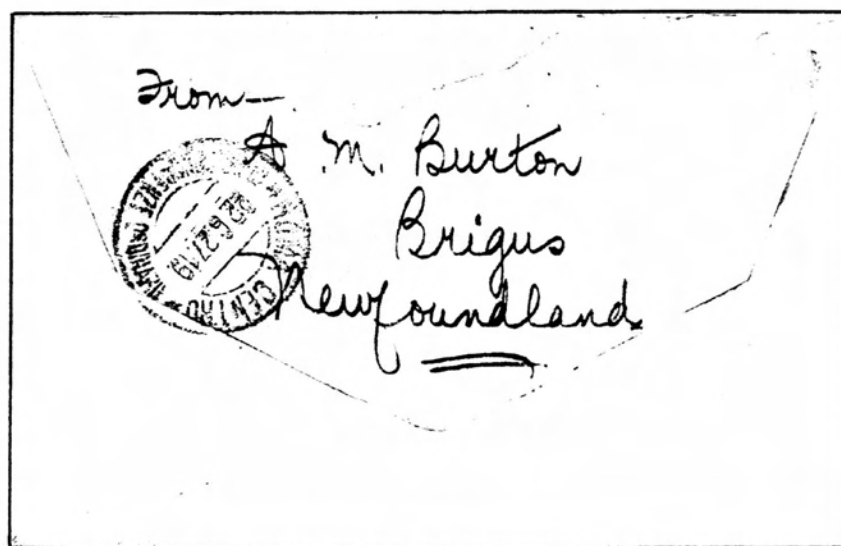 From—
A. M. Burton
Brigus
Newfoundland
ROMA
CENTRO
22.6.27.19